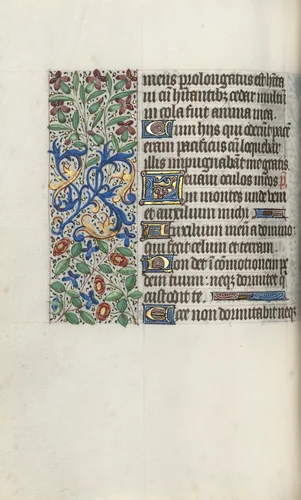 meus prolongatus est hita
ui cū hitantibz cedar multū
in cola fuit anima mea.
Cum hys qui oderūt pacē
eram pacificus cū loquebar
illis impugnabāt me gratis.
Leuaui oculos meos
in montes unde veni
et auxilium michi
Auxilium meū a domino:
qui fecit celum et terram.
Non det ī cōmotionem pe
dem tuum: neqz dormitet q
custodit te.
Ecce non dormitabit neqz